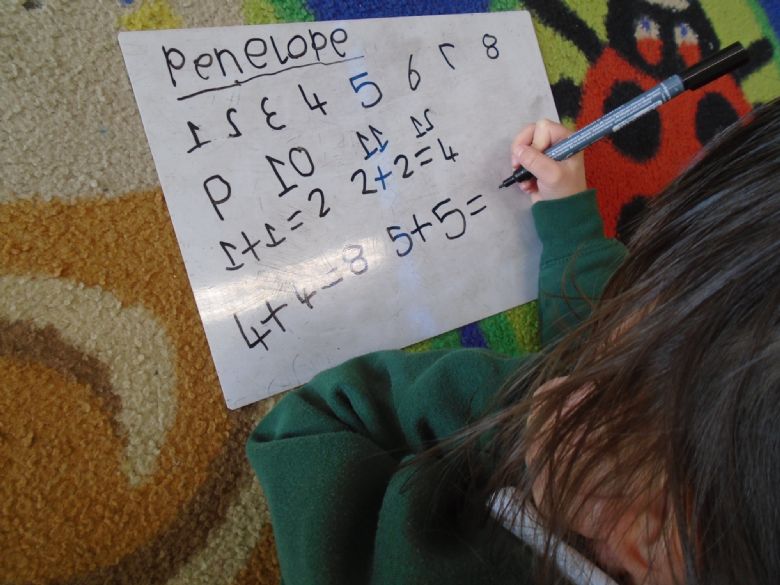 Penelope
1 2 3 4 5 6 7 8
9 10 11 12
1+1=2 2+2=4
4+4=8 5+5=